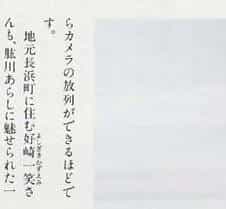 らカメラの放列ができるほどで
す。
　地元長浜町に住む好崎一笑さ
んも、肱川あらしに魅せられた一